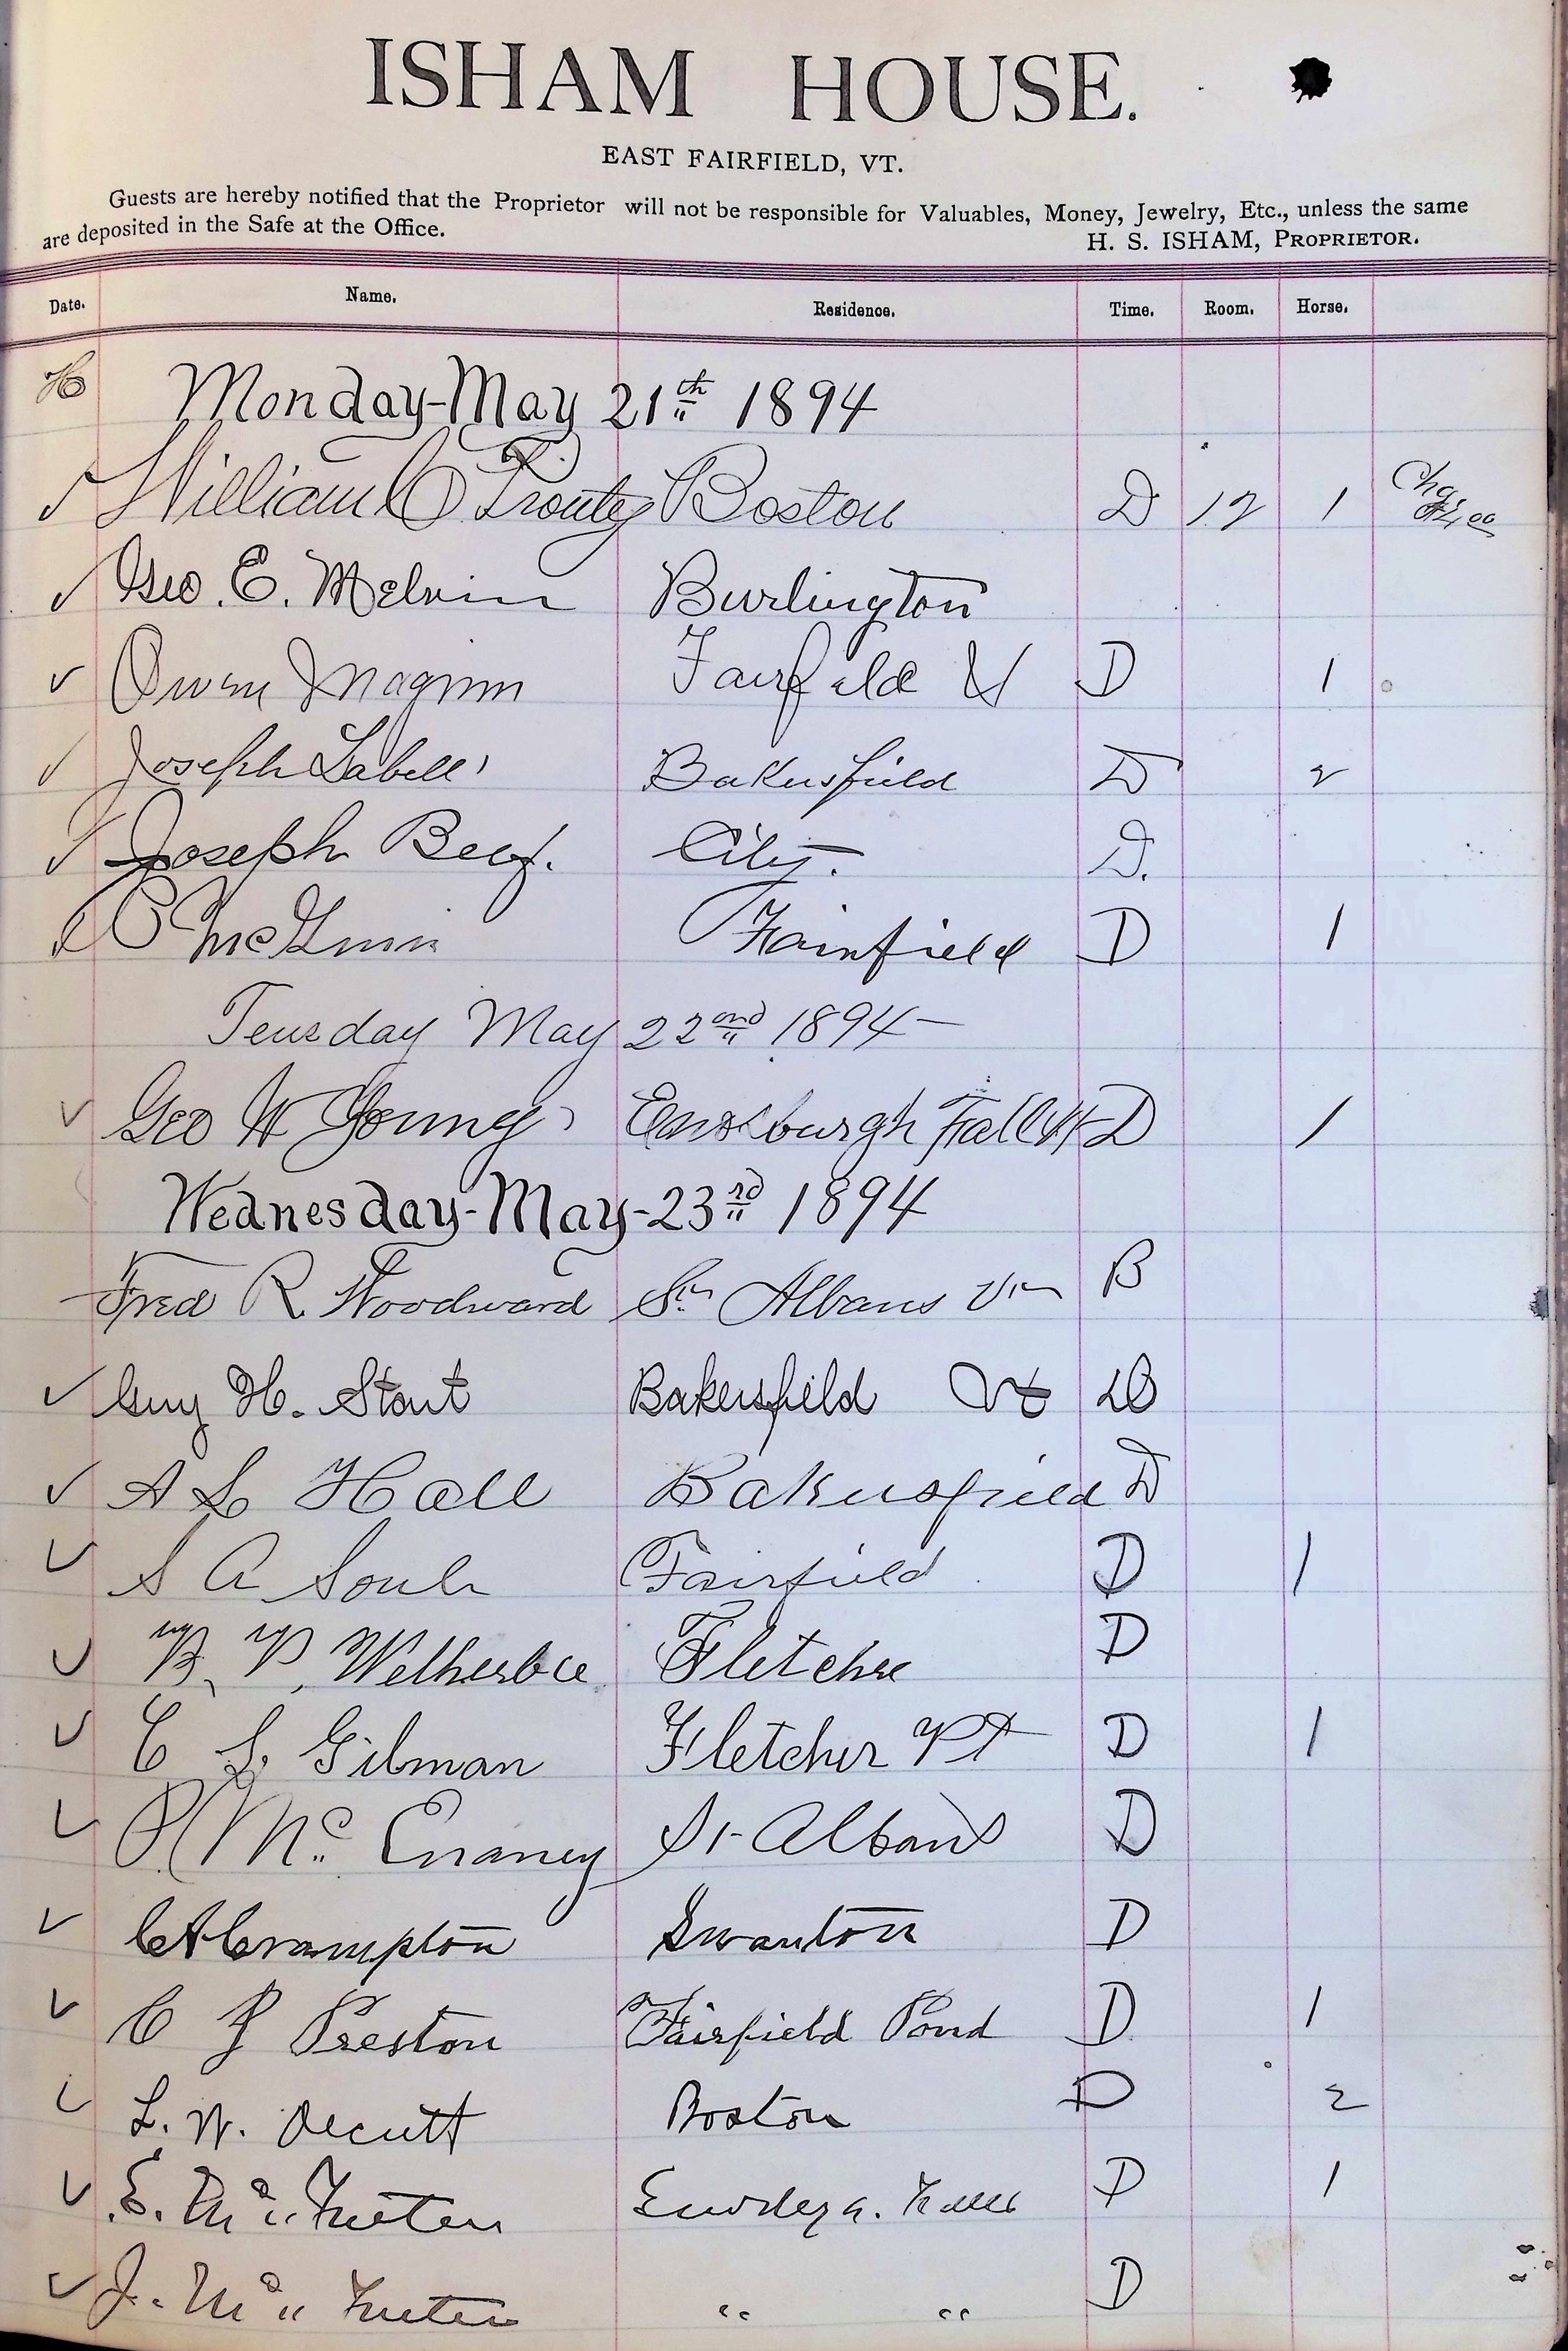 ISHAM HOUSE.
EAST FAIRFIELD, VT.
Guests are hereby notified that the Proprietor will not be responsible for Valuables, Money, Jewelry, Etc., unless the same
are deposited in the Safe at the Office.
H. S. ISHAM, PROPRIETOR.
Date. Name. Residence. Time. Room. Horse.
Monday-May 21th 1894
William C Prouty Boston D 12 1 Chg
Geo. E. Melvin Burlington
Owen Maginn Fairfield Vt D 1
Joseph Labell Bakersfield D 2
Joseph City. D.
P McGinn Fairfield D 1
Teusday May 22nd 1894-
Geo W Young Enosburgh Falls Vt D 1
Wednesday-May-23rd 1894
Fred R. Woodward St. Albans Vt B
Guy H. Stout Bakersfield Vt D
A L Hall Bakersfield D
S A Soule Fairfield D 1
B. P. Wetherbee Fletcher D
C L. Gilman Fletcher Vt D 1
P Mc Enaney St-Albans D
CA Crampton Swanton D
C J Preston Fairfield Pond D 1
L. W. Orcutt Boston D 2
E. Mc Feeters D 1
J. Mc Feeters " " D